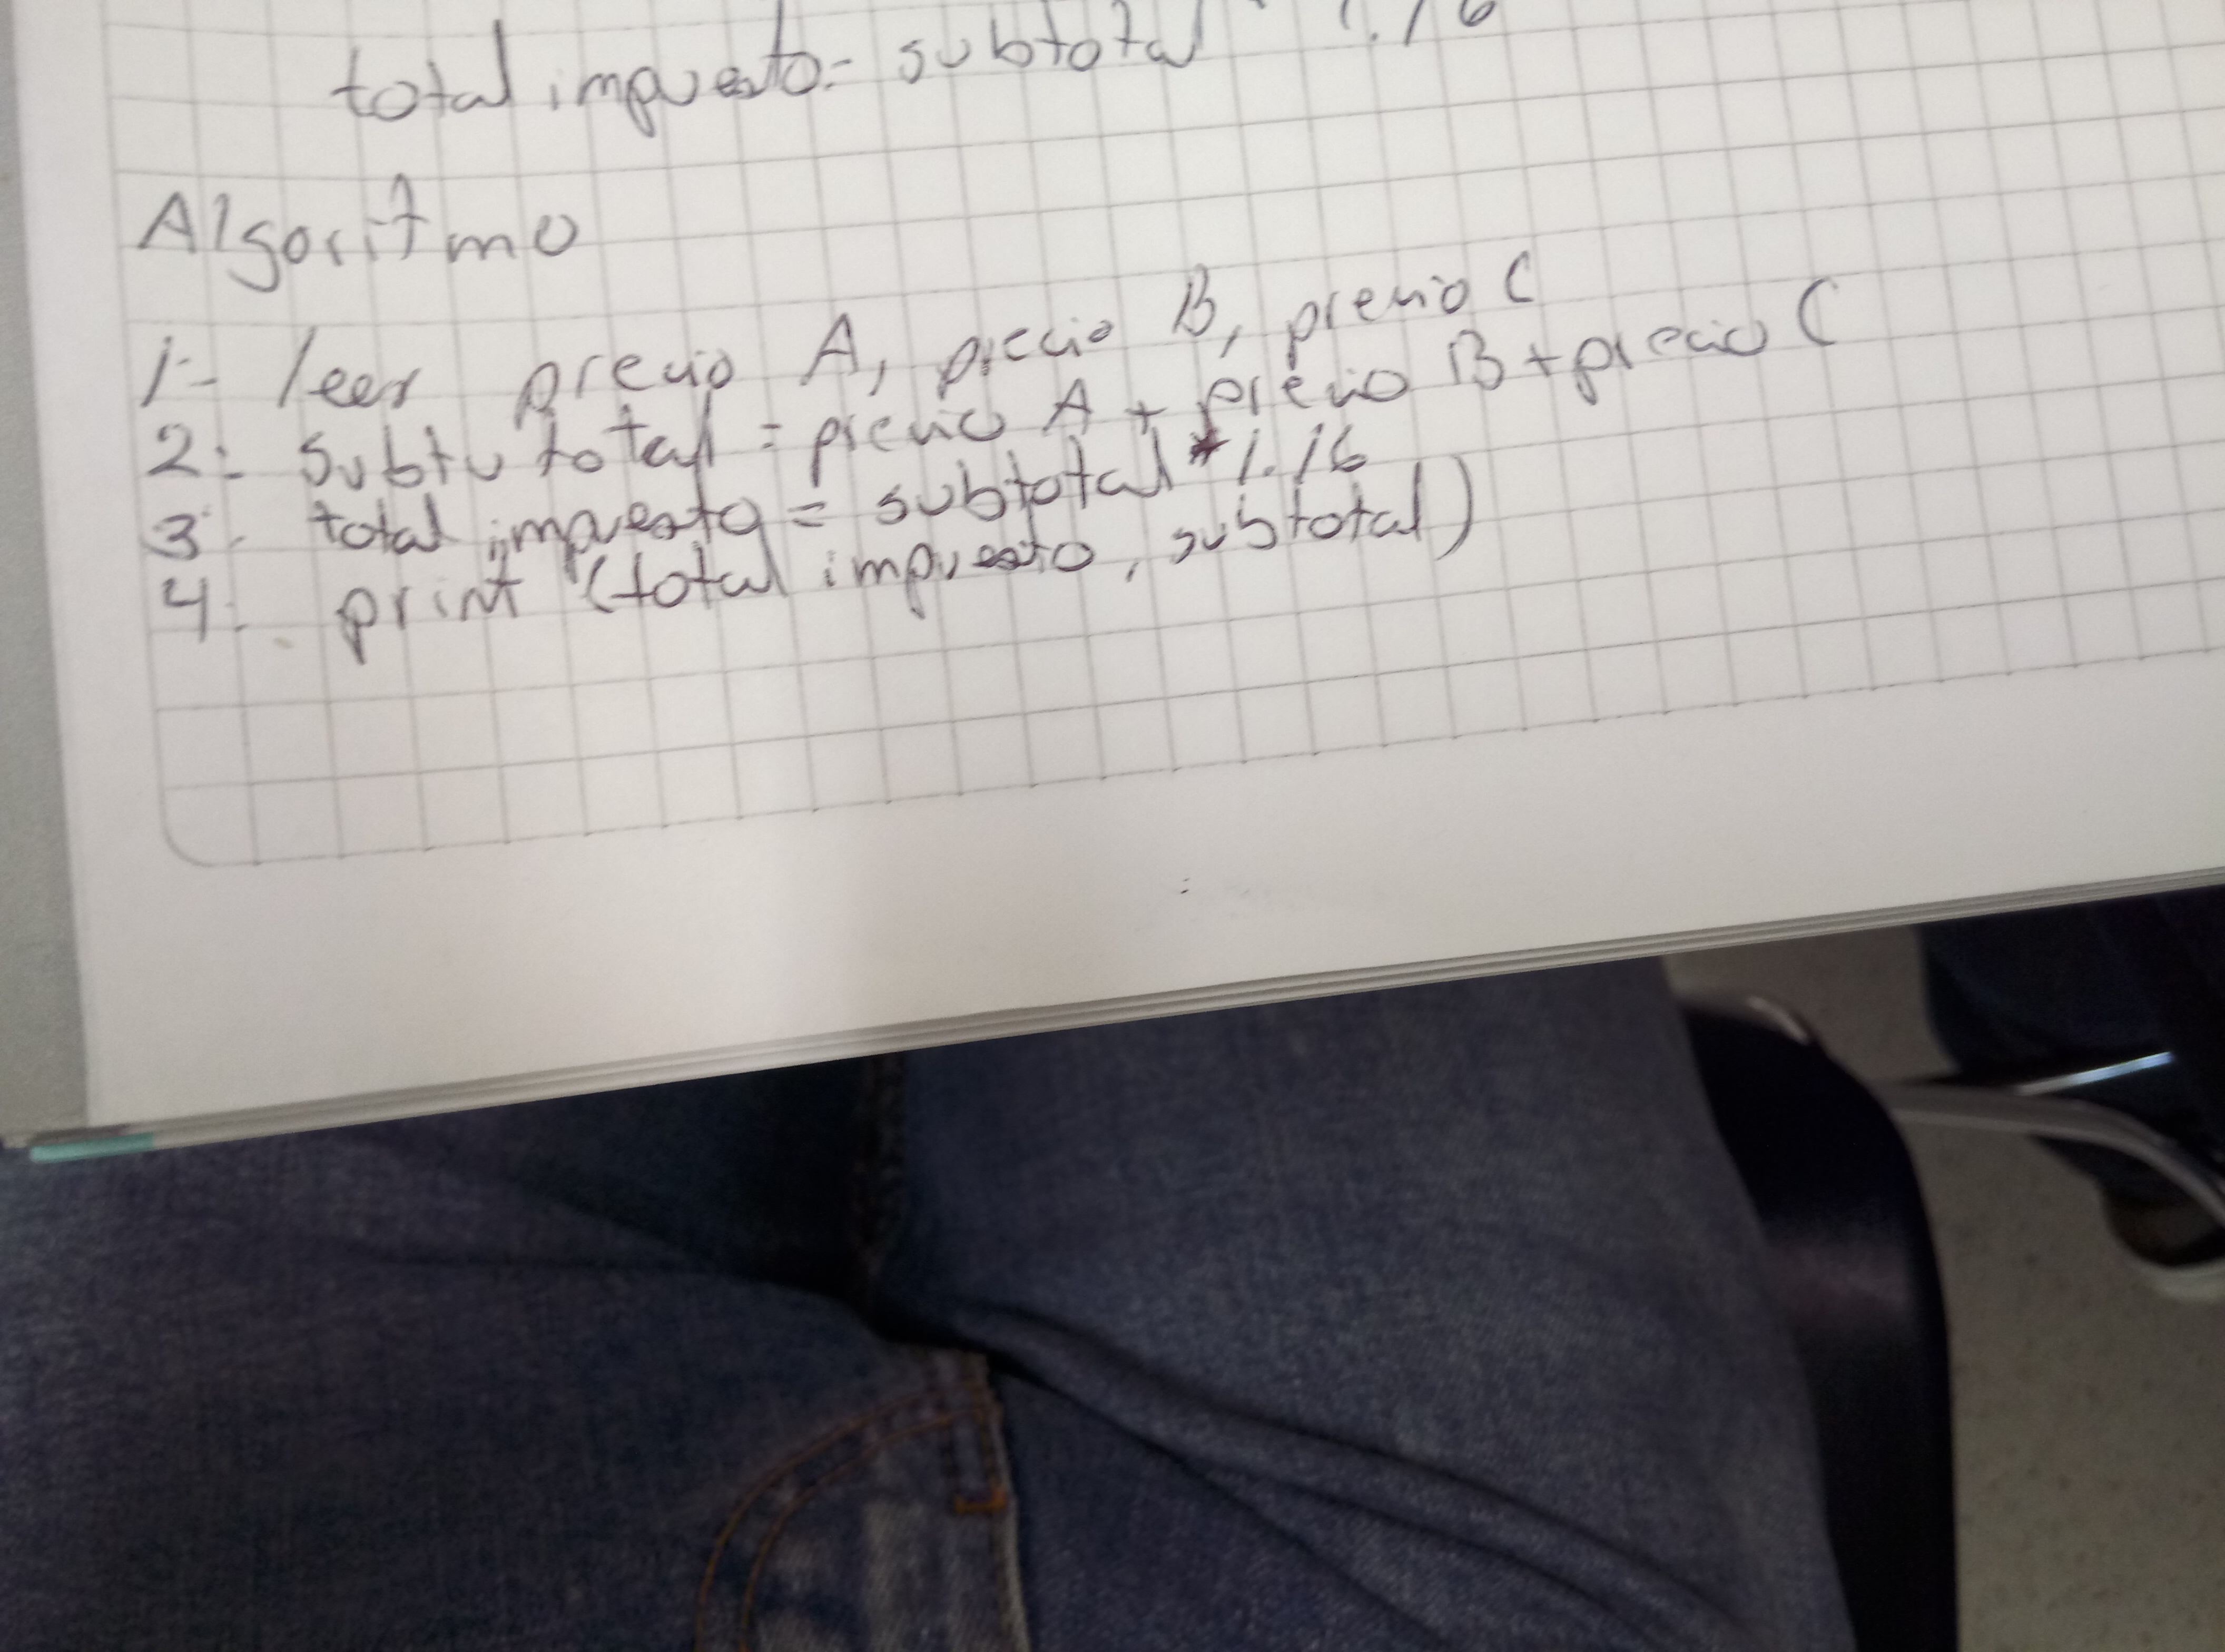 total impuesto = subtotal * 1.16
Algoritmo
1- leer precio A, precio B, precio C
2- subtutotal = precio A + precio B + precio C
3- total impuesto = subtotal * 1.16
4- print (total impuesto, subtotal)